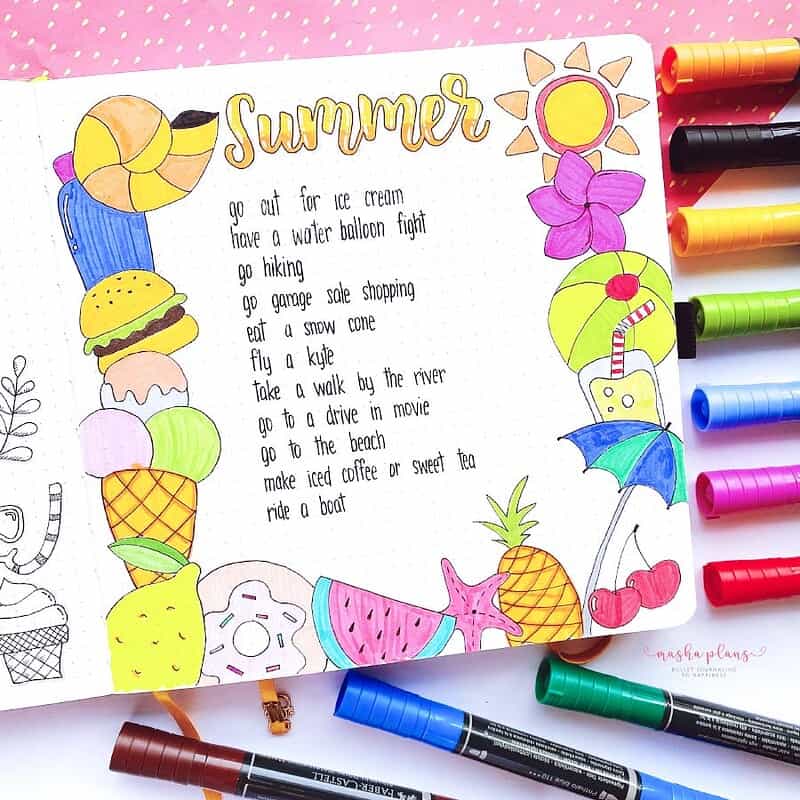 Summer
go out for ice cream
have a water balloon fight
go hiking
go garage sale shopping
eat a snow cone
fly a kyte
take a walk by the river
go to a drive in movie
go to the beach
make iced coffee or sweet tea
ride a boat
masha plans
BULLET JOURNALING
TO HAPPINESS
FABER-CASTELL